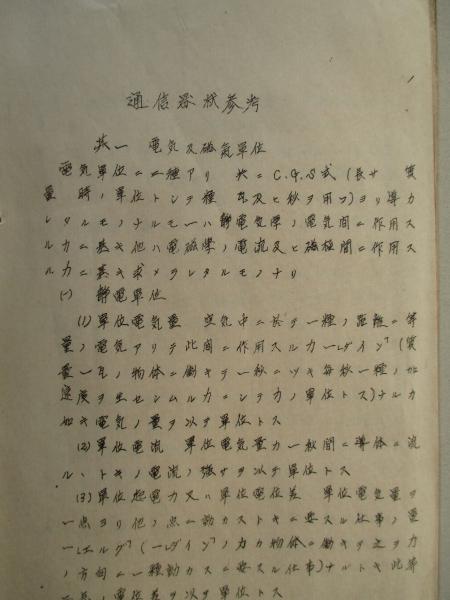 通信器材参考
其一 電気及磁気單位
電気單位ニ二種アリ 共ニC.G.S式(長サ 質
量 時ノ單位トシテ糎 瓦及ヒ秒ヲ用フ)ヨリ導カ
レタルモノナルモ一ハ静電気学ノ電気間ニ作用ス
ル力ニ基キ他ハ電磁學ノ電流及ヒ磁極間ニ作用ス
ル力ニ基キ求メラレタルモノナリ
(一) 静電單位
(1)單位電気量 空気中ニ於テ一糎ノ距離ニ等
量ノ電気アリテ此間ニ作用スル力一「ダイン」(質
量一瓦ノ物体ニ働キテ一秒ニツキ毎秒一糎ノ加
速度ヲ生セシムル力ニシテ力ノ單位トス)ナルカ
如キ電気ノ量ヲ以テ單位トス
(2)單位電流 單位電気量カ一秒間ニ導体ニ流
ルヽトキノ電流ノ強サヲ以テ單位トス
(3)單位起電力又ハ單位電位差 單位電気量ヲ
一点ヨリ他ノ点ニ動カストキニ要スル仕事ノ量
一「エルグ」(一「ダイン」ノ力カ物体ニ働キテ之ヲ力
ノ方向ニ一糎動カスニ要スル仕事)ナルトキ此等
二点ノ電位差ヲ以テ單位トス